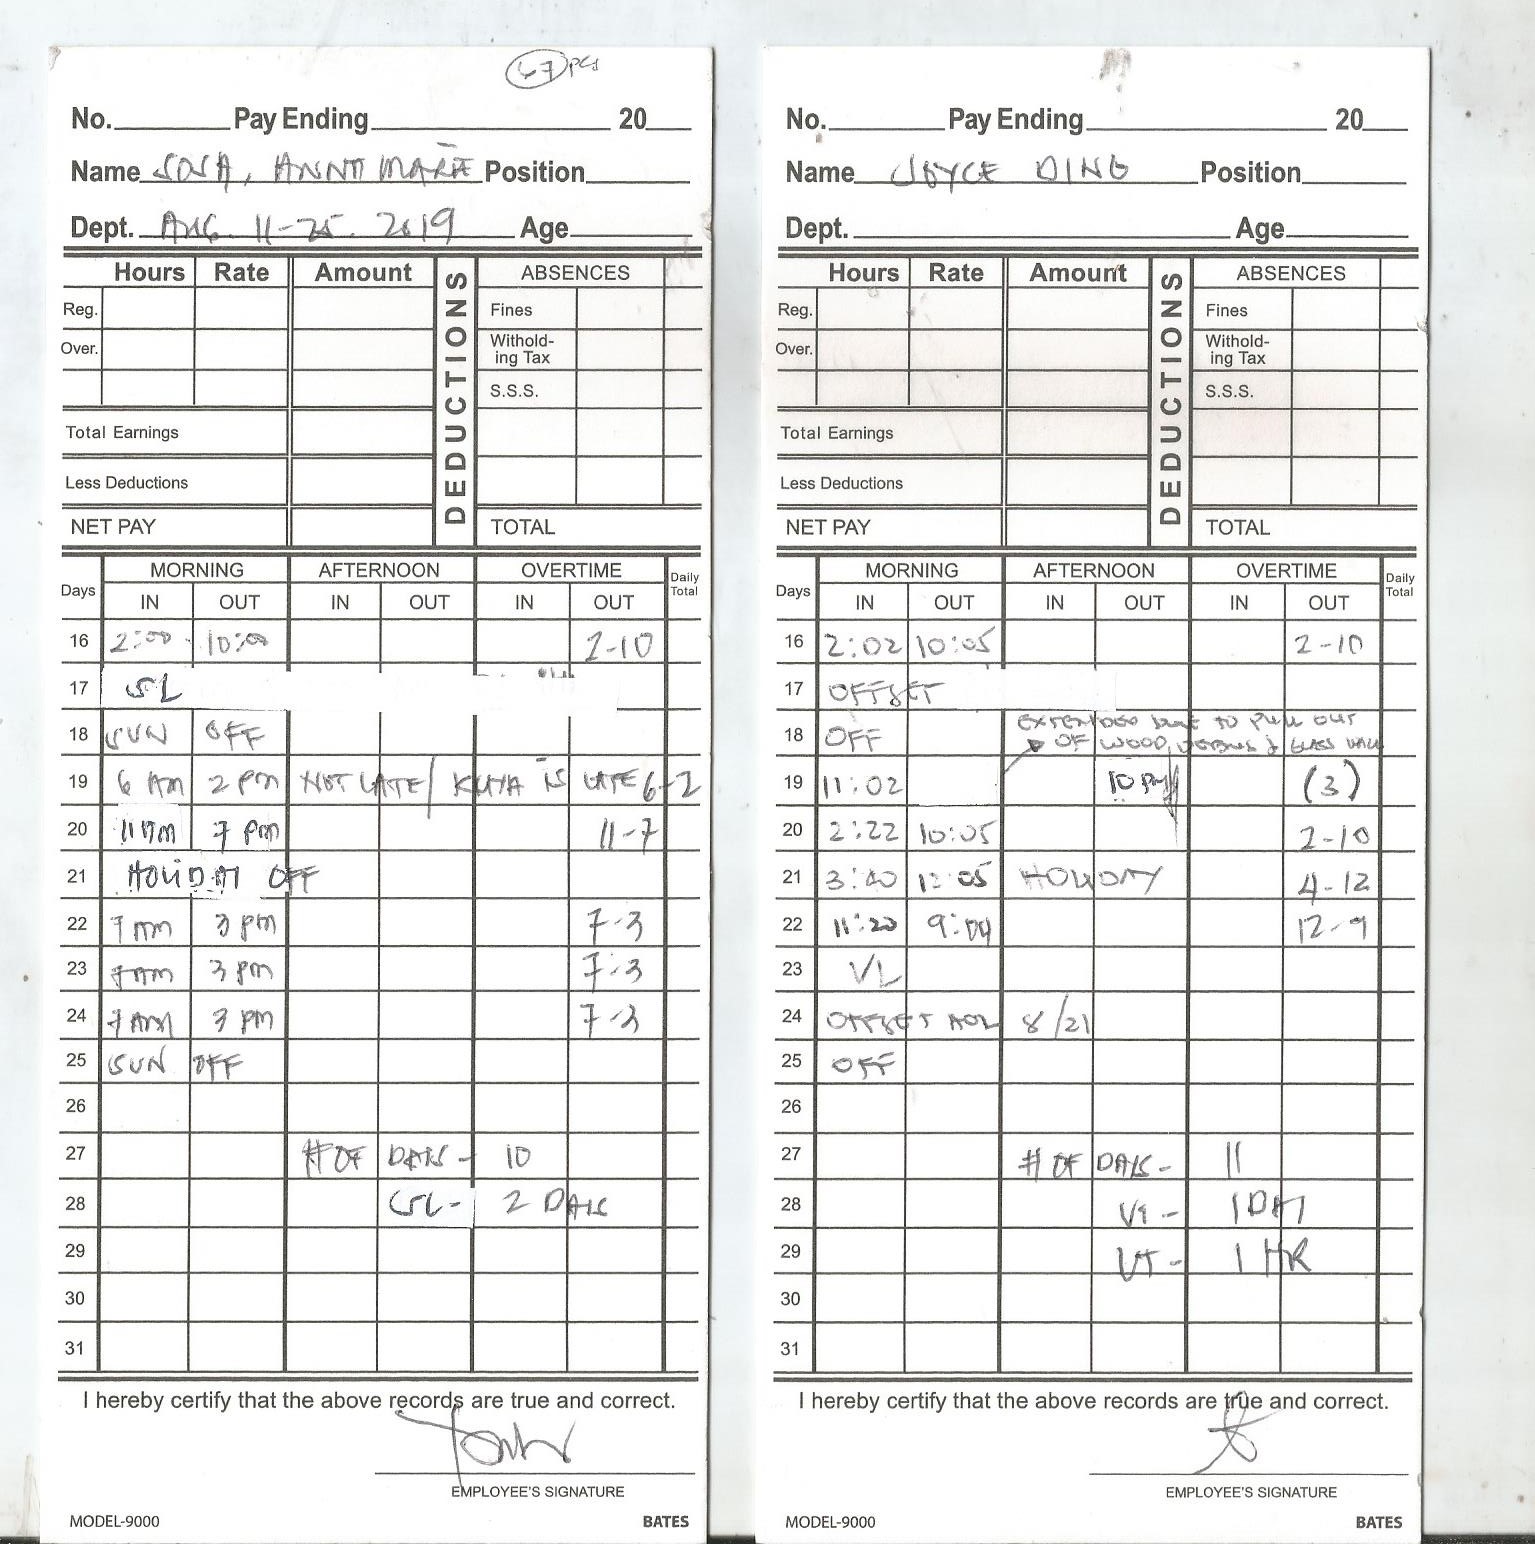 67 pcs
No. Pay Ending 20
Name SOSA, ANNA MARIE Position
Dept. AUG. 11-25. 2019 Age
Hours Rate Amount DEDUCTIONS ABSENCES
Reg. Fines
Over. Withold-
ing Tax
S.S.S.
Total Earnings
Less Deductions
NET PAY TOTAL
Days MORNING AFTERNOON OVERTIME Daily
Total
IN OUT IN OUT IN OUT
16 2:00 - 10:00 2-10
17 SL
18 SUN OFF
19 6 AM 2 PM NOT LATE/ KUYA IS LATE 6-2
20 11 AM 7 PM 11-7
21 HOLIDAY OFF
22 7 AM 3 PM 7-3
23 7 AM 3 PM 7-3
24 7 AM 3 PM 7-3
25 SUN OFF
26
27 # OF DAYS - 10
28 SL - 2 DAYS
29
30
31
I hereby certify that the above records are true and correct.
EMPLOYEE'S SIGNATURE
MODEL-9000 BATES
No. Pay Ending 20
Name JOYCE DING Position
Dept. Age
Hours Rate Amount DEDUCTIONS ABSENCES
Reg. Fines
Over. Withold-
ing Tax
S.S.S.
Total Earnings
Less Deductions
NET PAY TOTAL
Days MORNING AFTERNOON OVERTIME Daily
Total
IN OUT IN OUT IN OUT
16 2:02 10:05 2-10
17 OFFSET
EXTENDED DUE TO PULL OUT
18 OFF OF WOOD, DEBRIS & GLASS WALL
19 11:02 10 PM (3)
20 2:22 10:05 2-10
21 3:40 12:05 HOLIDAY 4-12
22 11:20 9:04 12-9
23 VL
24 OFFSET 8/21
25 OFF
26
27 # OF DAYS - 11
28 1 DAY
29 UT - 1 HR
30
31
I hereby certify that the above records are true and correct.
EMPLOYEE'S SIGNATURE
MODEL-9000 BATES